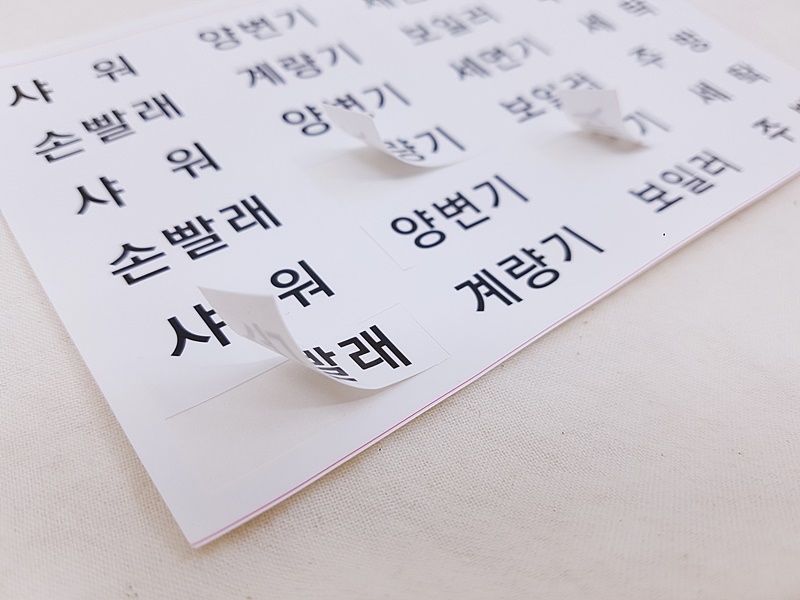 샤 워 양변기
손빨래 계량기 보일러 세탁
샤 워 양변기 세면기 주방
손빨래 량기 보일러 세탁
샤 워 양변기 기 주
빨래 계량기 보일러